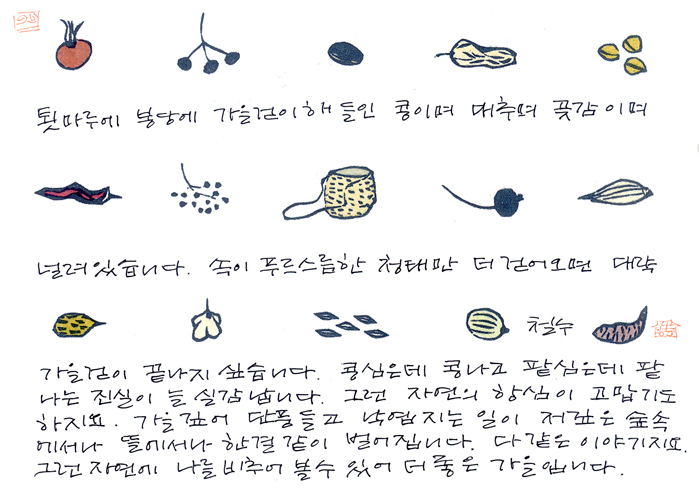 툇마루에 봉당에 가을걷이해 들인 콩이며 대추며 곶감이며
널려있습니다. 속이 푸르스름한 청태만 더 걷어오면 대략
철수
가을걷이 끝나지 싶습니다. 콩심은데 콩나고 팥심은데 팥
나는 진실이 늘 실감납니다. 그런 자연의 항심이 고맙기도
하지요. 가을깊어 단풍들고 낙엽지는 일이 저 깊은 숲속
에서나 뜰에서나 한결같이 벌어집니다. 다 같은 이야기지요.
그런 자연에 나를 비추어 볼 수 있어 더 좋은 가을입니다.